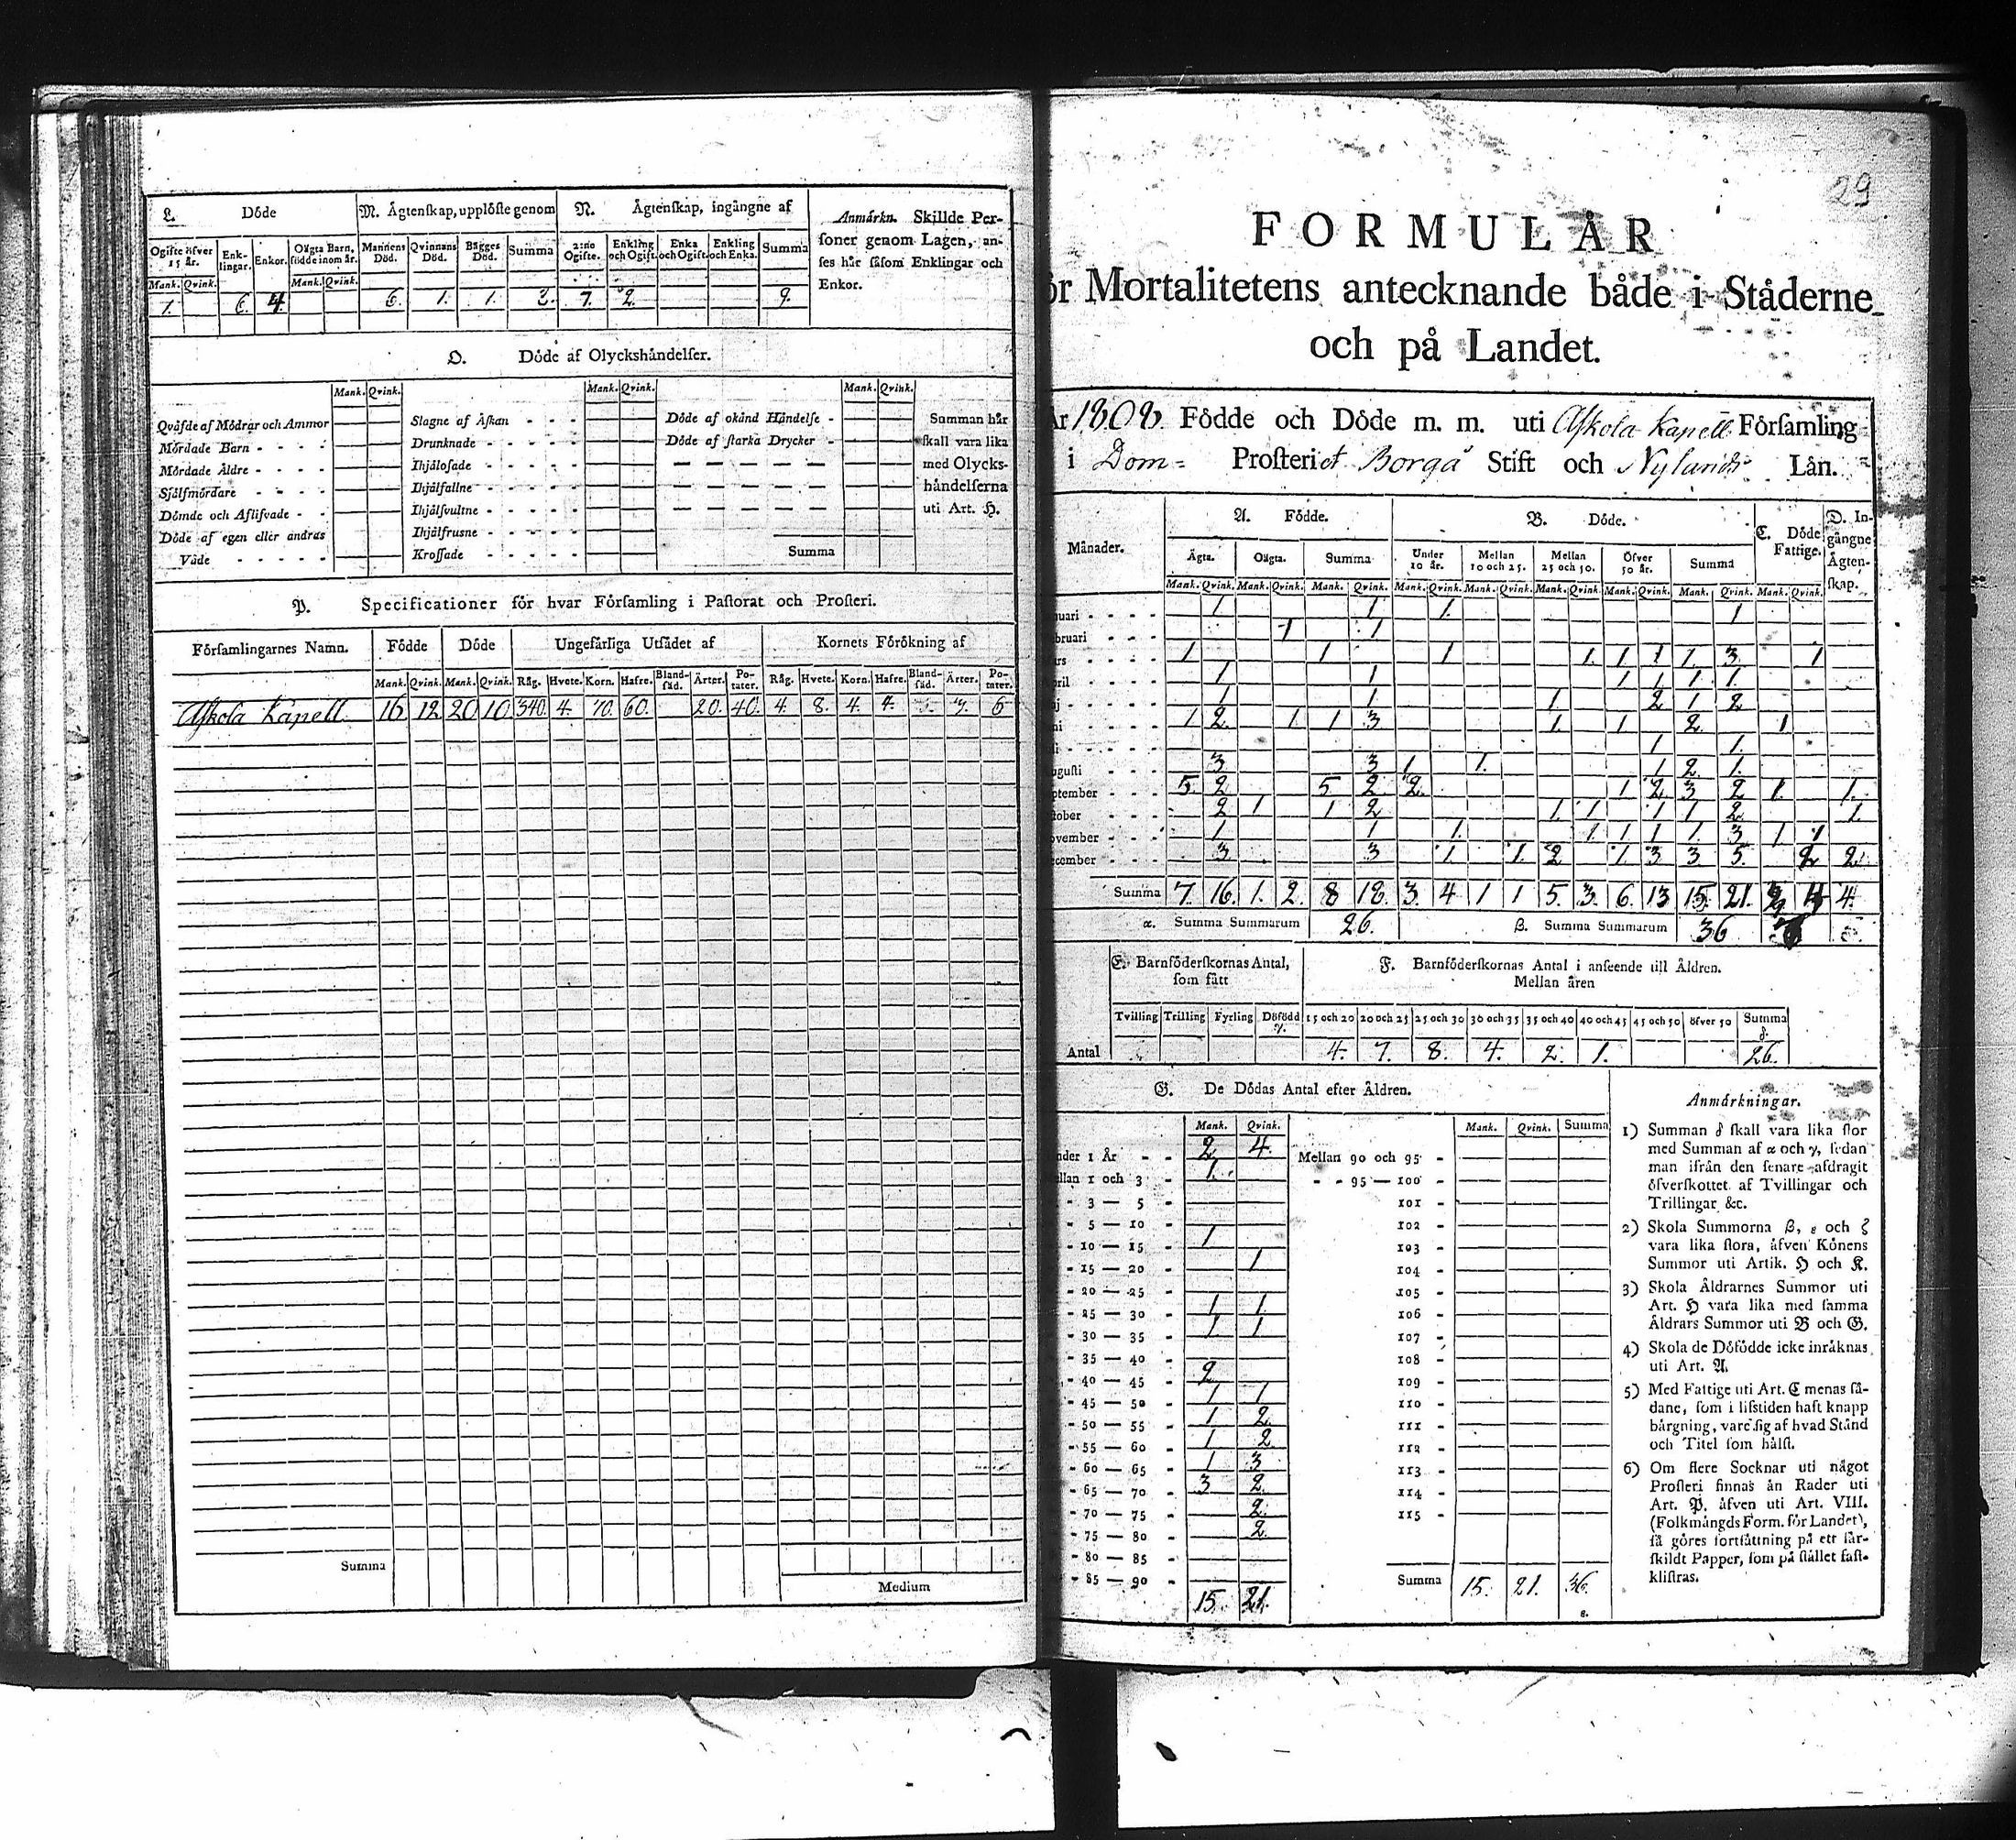 L. Döde
M. Ägtenskap, upplöste genom
N. Ägtenskap, ingångne af
Anmärkn. Skillde Personer
soner genom Lagen, anses
ses här såsom Enklingar och
Enkor.
Ogifte öfver 15 år. Enklingar. Enkor. Oägta Barn, födde inom år. Mannens Död. Qvinnans Död. Bägges Död. Summa 2:ne Ogifte. Enkling och Ogift. Enka och Ogift. Enkling och Enka. Summa
Mank. Qvink. Mank. Qvink.
1. 6. 4. 6. 1. 1. 3. 7. 2. 9.
O. Döde af Olyckshändelser.
Mank. Qvink. Mank. Qvink. Mank. Qvink.
Qväfde af Mödrar och Ammor Slagne af Åskan Döde af okänd Händelse Summan här
Mördade Barn Drunknade Döde af starka Drycker skall vara lika
Mördade Äldre Ihjälosade med Olycks-
Sjelfmördare Ihjälfallne händelserna
Dömde och Aflifvade Ihjälsvultne uti Art. H.
Döde af egen eller andras Ihjälfrusne
Våde Krossade Summa
P. Specificationer för hvar Församling i Pastorat och Prosteri.
Församlingarnes Namn. Födde Döde Ungefärliga Utsädet af Kornets Förökning af
Mank. Qvink. Mank. Qvink. Råg. Hvete. Korn. Hafre. Blandsäd. Ärter. Potater. Råg. Hvete. Korn. Hafre. Blandsäd. Ärter. Potater.
Askola Kapell 16 12 20 10 340. 4. 70. 60. 20. 40. 4. 8. 4. 4. 3. 6
Summa
Medium
29
FORMULÄR
ör Mortalitetens antecknande både i Städerne
och på Landet.
År 1808. Födde och Döde m. m. uti Askola Kapell Församling
i Dom= Prosteriet Borgå Stift och Nylands Län.
Månader. A. Födde. B. Döde. C. Döde Fattige. D. Ingångne Ägtenskap.
Ägta. Oägta. Summa Under 10 år. Mellan 10 och 25. Mellan 25 och 50. Öfver 50 år. Summa
Mank. Qvink. Mank. Qvink. Mank. Qvink. Mank. Qvink. Mank. Qvink. Mank. Qvink. Mank. Qvink. Mank. Qvink. Mank. Qvink.
nuari 1 1 1. 1
bruari 1 1
rs 1 1 1 1. 1 1 1. 3. 1
pril 1 1 1 1 1 1.
aj 1 1 1 2 1 2
ni 1 2. 1 1 3 1. 1 2. 1
li 1 1.
ugusti 3 3 1 1. 1 2 1.
ptember 5. 2 5 2 2. 1 2 3 2 1. 1.
tober 2 1 1 2 1. 1 1 1 2 1.
ovember 1 1 1. 1. 1 1 1. 3 1 1
ecember 3 3 1 1. 2 1. 3 3 5. 2 2
Summa 7. 16. 1. 2. 8 18. 3. 4 1 1 5. 3. 6. 13 15. 21. 4 4.
α. Summa Summarum 26. β. Summa Summarum 36
E. Barnföderskornas Antal, som fått
F. Barnföderskornas Antal i anseende till Åldren.
Mellan åren
Tvilling Trilling Fyrling Dödfödd γ. 15 och 20 20 och 25 25 och 30 30 och 35 35 och 40 40 och 45 45 och 50 öfver 50 Summa δ
Antal 4. 7. 8. 4. 2. 1. 26.
G. De Dödas Antal efter Åldren.
Mank. Qvink. Mank. Qvink. Summa
nder 1 År 2 4. Mellan 90 och 95
ellan 1 och 3 1. 95 — 100
3 — 5 101
5 — 10 102
10 — 15 1 103
15 — 20 1 104
20 — 25 105
25 — 30 1 1. 106
30 — 35 1 1 107
35 — 40 108
40 — 45 2 109
45 — 50 1 1 110
50 — 55 1 2. 111
55 — 60 1 2 112
60 — 65 1 3 113
65 — 70 3 2. 114
70 — 75 2. 115
75 — 80 2.
80 — 85
85 — 90 Summa 15. 21. 36.
15. 21. ε.
Anmärkningar.
1) Summan δ skall vara lika stor
med Summan af α och γ, sedan
man ifrån den senare afdragit
öfverskottet af Tvillingar och
Trillingar &c.
2) Skola Summorna β, ε och ζ
vara lika stora, äfven Könens
Summor uti Artik. H och K.
3) Skola Åldrarnes Summor uti
Art. H vara lika med samma
Åldrars Summor uti B och G.
4) Skola de Döfödde icke inräknas
uti Art. A.
5) Med Fattige uti Art. C menas så-
dane, som i lifstiden haft knapp
bärgning, vare sig af hvad Stånd
och Titel som hälst.
6) Om flere Socknar uti något
Prosteri finnas än Rader uti
Art. P. äfven uti Art. VIII.
(Folkmängds Form. för Landet),
så göres fortsättning på ett sär-
skildt Papper, som på stället fast-
klistras.